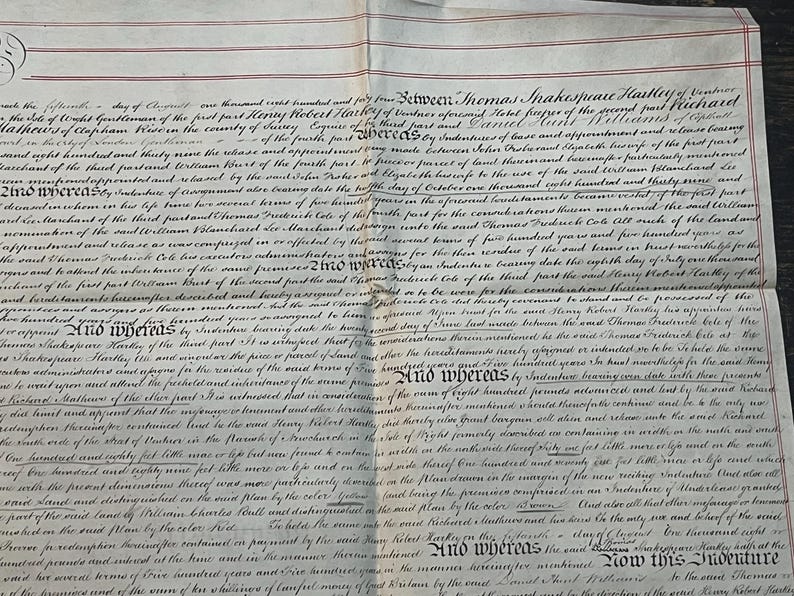 made the fifteenth day of August one thousand eight hundred and forty four Between Thomas Shakespeare Hartley of Ventnor
in the Isle of Wight Gentleman of the first part Henry Robert Hartley of Ventnor aforesaid Hotel keeper of the second part Richard
Mathews of Clapham Rise in the County of Surrey Esquire of the third part and Daniel Hunt Williams of Copthall
Court in the City of London Gentleman of the fourth part Whereas by Indentures of lease and appointment and release bearing
sand eight hundred and thirty nine the release and appointment being made between John Fisher and Elizabeth his wife of the first part
Marchant of the third part and William Burt of the fourth part the piece or parcel of land therein and hereinafter particularly mentioned
were appointed and released by the said John Fisher and Elizabeth his wife to the use of the said William Blanchard Lee
And whereas by Indenture of assignment also bearing date the twelfth day of October one thousand eight hundred and thirty nine and
deceased in whom in his life time two several terms of five hundred years in the aforesaid hereditaments became vested of the first part
ard Lee Marchant of the third part and Thomas Frederick Cole of the fourth part for the considerations therein mentioned the said William
nomination of the said William Blanchard Lee Marchant did assign unto the said Thomas Frederick Cole All such of the land and
appointment and release as was comprized in or affected by the said several terms of five hundred years and five hundred years as
the said Thomas Frederick Cole his executors administrators and assigns for the then residue of the said terms in trust nevertheless for the
signs and to attend the inheritance of the same premises And whereas by an Indenture bearing date the eighth day of July one thousand
rchant of the first part William Burt of the second part the said Thomas Frederick Cole of the third part the said Henry Robert Hartley of the
and hereditaments hereinafter described and hereby assigned or intended so to be for the considerations therein mentioned appointed
premises and assigns as therein mentioned And the said Thomas Frederick Cole did thereby covenant to stand and be possessed of the
five hundred years so assigned to him as aforesaid Upon trust for the said Henry Robert Hartley his appointees heirs
or appoint And whereas by Indenture bearing date the twenty second day of June last made between the said Thomas Frederick Cole of the
Thomas Shakespeare Hartley of the third part It is witnessed that for the considerations therein mentioned he the said Thomas Frederick Cole at the
Shakespeare Hartley All and singular the piece or parcel of Land and other the hereditaments hereby assigned or intended so to be To hold the same
cutors administrators and assigns for the residue of the said terms of Five hundred years and Five hundred years In trust nevertheless for the said Henry
to wait upon and attend the freehold and inheritance of the same premises And whereas by Indenture bearing even date with these presents
Richard Mathews of the other part It is witnessed that in consideration of the sum of eight hundred pounds advanced and lent by the said Richard
did limit and appoint that the messuage or tenement and other hereditaments thereinafter mentioned should thenceforth continue and be to the only use
redemption thereinafter contained And he the said Henry Robert Hartley did thereby also grant bargain sell alien and release unto the said Richard
the South side of the Street of Ventnor in the Parish of Newchurch in the Isle of Wight formerly described as containing in width on the north and south
One hundred and eighty feet little more or less but now found to contain in width on the north side thereof Sixty one feet little more or less and on the south
reof One hundred and eighty nine feet little more or less and on the west side thereof One hundred and seventy five feet little more or less and which
with the present dimensions thereof was more particularly described on the Plan drawn in the margin of the now reciting Indenture And also all
said Land and distinguished on the said plan by the color Yellow and being the premises comprised in an Indenture of Underlease granted
part of the said land to William Charles Bull and distinguished on the said plan by the color Brown And also all that other messuage or tenement
nished on the said plan by the color Red To hold the same unto the said Richard Mathews and his heirs To the only use and behoof of the said
Proviso for redemption thereinafter contained on payment by the said Henry Robert Hartley on the fifteenth day of August One thousand eight
hundred pounds and interest at the time and in the manner therein mentioned And whereas the said Thomas Shakespeare Hartley hath at the
said two several terms of Five hundred years and Five hundred years in the manner hereinafter mentioned Now this Indenture
of the premises and of the sum of ten shillings of lawful money of Great Britain by the said Daniel Hunt Williams to the said Thomas
direction of the said Henry Robert Hartley